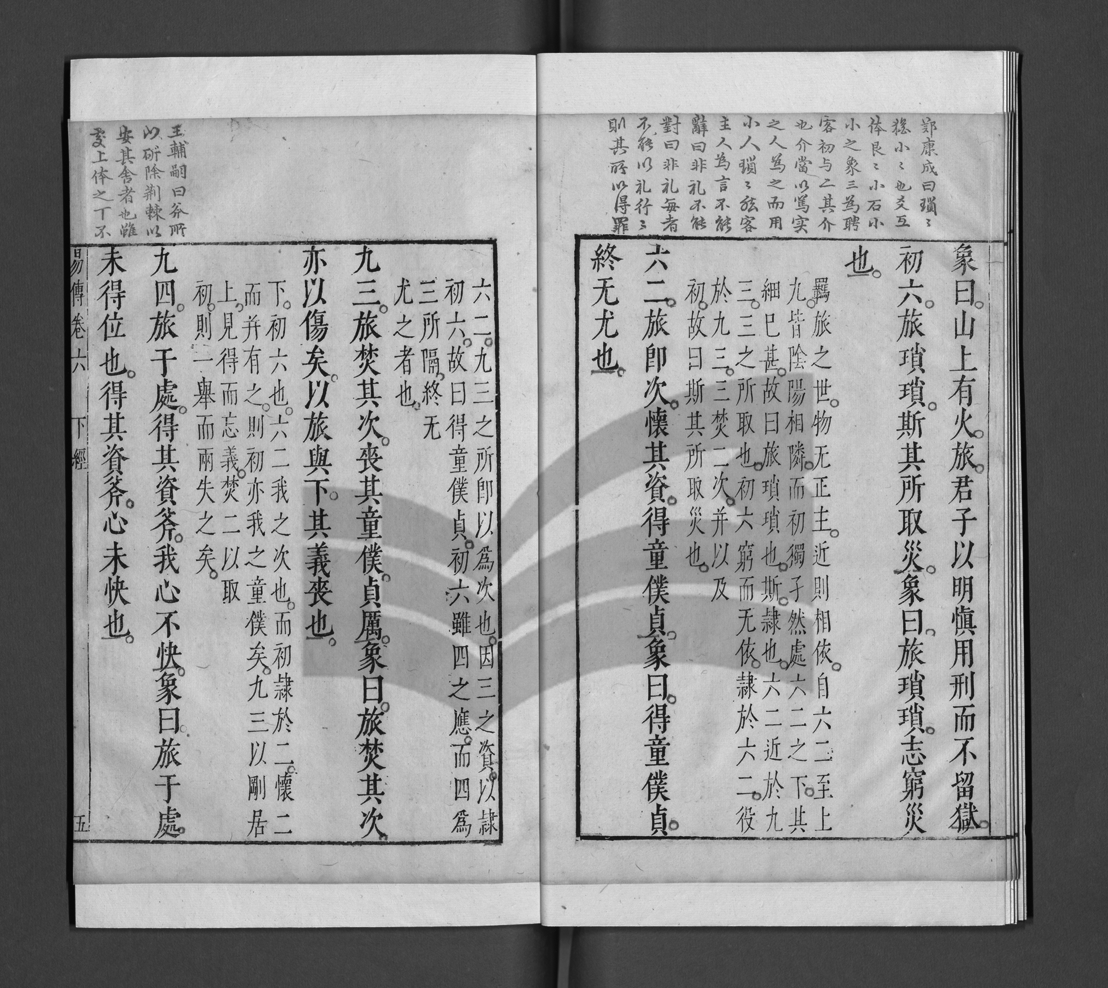 鄭康成曰瑣瑣
猶小小也爻互
体艮艮小石小
小之象三為聘
客初与二其介
也介當以篤实
之人為之而用
小人瑣瑣然客
主人為言不能
辭曰非礼不能
對曰非礼每者
不能以礼行之
則其所以得罪
象曰山上有火旅君子以明慎用刑而不留獄
初六旅瑣瑣斯其所取災象曰旅瑣瑣志窮災
也
羈旅之世物无正主近則相依自六二至上
九皆陰陽相隣而初獨孑然處六二之下其
細巳甚故曰旅瑣瑣也斯隷也六二近於九
三三之所取也初六窮而无依隷於六二役
於九三三焚二次并以及
初故曰斯其所取災也
六二旅卽次懷其資得童僕貞象曰得童僕貞
終无尤也
六二九三之所卽以爲次也因三之資以隷
初六故曰得童僕貞初六雖四之應而四爲
三所隔終无
尤之者也
九三旅焚其次喪其童僕貞厲象曰旅焚其次
亦以傷矣以旅與下其義喪也
下初六也六二我之次也而初隷於二懷二
而并有之則初亦我之童僕矣九三以剛居
上見得而忘義焚二以取
初則一舉而兩失之矣
九四旅于處得其資斧我心不快象曰旅于處
未得位也得其資斧心未快也
易傳卷六 下經 五
王輔嗣曰斧所
以斫除荆棘以
安其舍者也雖
處上体之下不